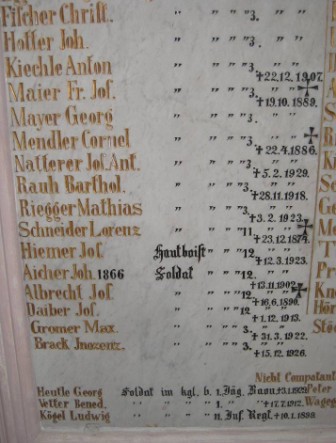 Fischer Christ. " " " " 3. " "
Hotter Joh. " " " " 3. " "
Kiechle Anton " " " " 3. " "
✝22.12.1907.
Maier Fr. Jos. " " " " 3. " "
✝19.10.1889.
Mayer Georg " " " " 3. " "
Mendler Cornel " " " " 3. " "
✝22.4.1886.
Natterer Jos. Ant. " " " " 3. " "
✝5.2.1929.
Rauh Barthol. " " " " 3. " "
✝28.11.1918.
Riegger Mathias " " " " 3. " "
✝3.2.1923.
Schneider Lorenz " " " " 11. " "
✝23.12.1874.
Hiemer Jos. Hautboist " " " 12. " "
✝12.3.1923.
Aicher Joh. 1866 Soldat " " " 12. " "
✝13.11.1902.
Albrecht Jos. " " " " 12. " "
✝16.6.1890.
Daiber Jos. " " " " 12. " "
✝1.12.1913.
Gromer Max. " " " " 3. " "
✝31.3.1922.
Brack Innozenz. " " " " 3. " "
✝15.12.1926.
Nicht Combatant
Heutle Georg Soldat im kgl. b. 1. Jäg. Baon.
Vetter Bened. " " " " 1. " " ✝17.7.1912.
Kögel Ludwig " " " " 11. Inf. Regt. ✝10.1.1898.
Peter